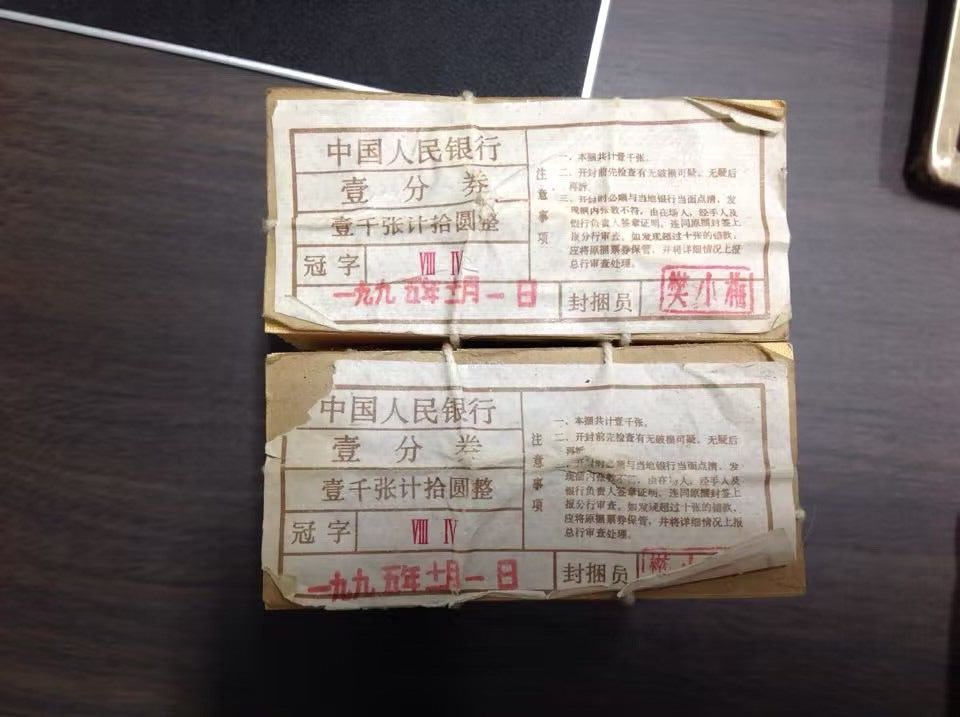 中国人民银行
壹分券
壹千张计拾圆整
冠字 VIII IV
一九九五年十月一日
封捆员 樊小梅
注意事项
一、本捆共计壹千张。
二、开封前先检查有无破损可疑。无疑后
再拆。
三、开封时必须与当地银行当面点清、发
现捆内张数不符，由在场人，经手人及
银行负责人签章证明，连同原捆封签上
报分行审查。如发现超过十张的错款，
应将原捆票券保管，并将详细情况上报
总行审查处理。
中国人民银行
壹分券
壹千张计拾圆整
冠字 VIII IV
一九九五年十月一日
封捆员 樊小
注意事项
一、本捆共计壹千张。
二、开封前先检查有无破损可疑。无疑后
再拆。
三、开封时必须与当地银行当面点清、发
现捆内张数不 由在场人，经手人及
银行负责人签章证明，连同原捆封签上
报分行审查。如发现超过十张的错款，
应将原捆票券保管，并将详细情况上报
总行审查处理。